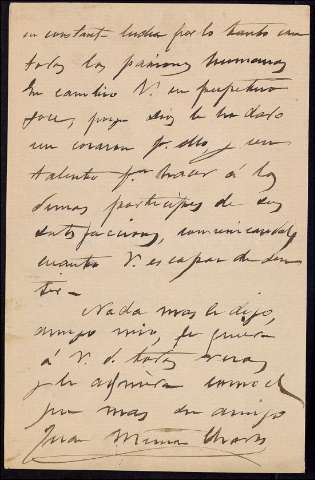 en constante lucha por lo tanto con
todas las pasiones humanas
En cambio V. en perpetuo
goce, porque Dios le ha dado
un corazon pª. ello, y un
talento pª. hacer á los
demas participes de sus
satisfacciones, comunicandoles
cuanto V. es capaz de sen
tir—
Nada mas le digo,
amigo mio, le quiera
á V. de todas veras
y le admira como el
que mas su amigo
Juan